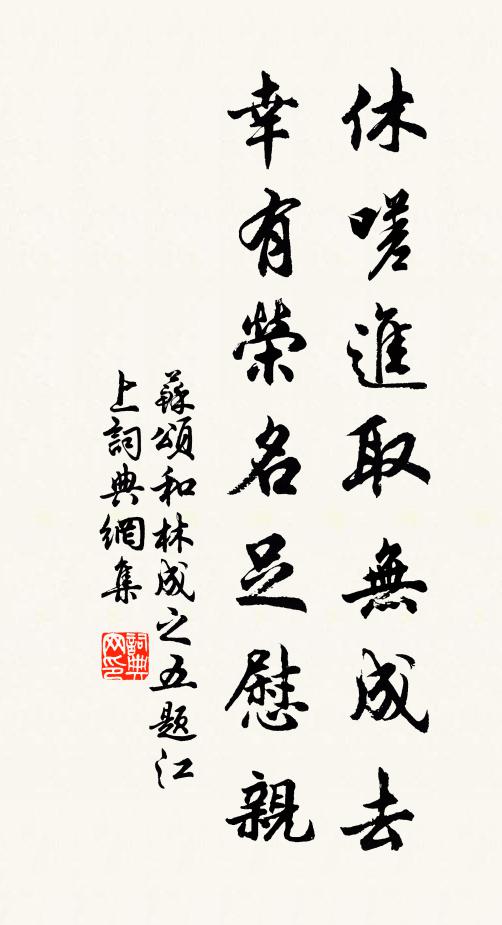 休嗟進取無成去
幸有榮名足慰親
蘇頌和林成之五题江
上詞典網集
詞典
网印